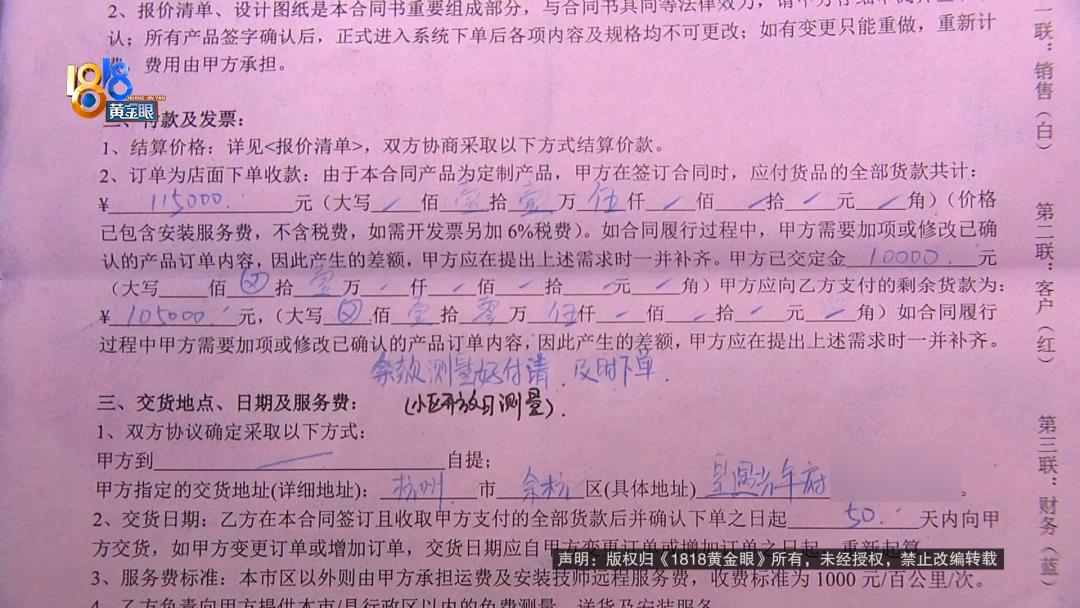 2、报价清单、设计图纸是本合同书重要组成部分，与合同书具同等法律效力，请甲方仔细
认；所有产品签字确认后，正式进入系统下单后各项内容及规格均不可更改；如有变更只能重做，重新计
费，费用由甲方承担。
1818
HUANG JIN YAN
黄金眼
二、付款及发票：
1、结算价格：详见<报价清单>，双方协商采取以下方式结算价款。
2、订单为店面下单收款：由于本合同产品为定制产品，甲方在签订合同时，应付货品的全部货款共计：
¥ 115000. 元（大写 / 佰 壹 拾 壹 万 伍 仟 / 佰 / 拾 / 元 / 角）（价格
已包含安装服务费，不含税费，如需开发票另加 6%税费）。如合同履行过程中，甲方需要加项或修改已确
认的产品订单内容，因此产生的差额，甲方应在提出上述需求时一并补齐。甲方已交定金 10000. 元
（大写 佰 拾 壹 万 / 仟 / 佰 / 拾 / 元 / 角）甲方应向乙方支付的剩余货款为：
¥ 105000. 元，（大写 佰 壹 拾 零 万 伍 仟 / 佰 / 拾 / 元 / 角）如合同履行
过程中甲方需要加项或修改已确认的产品订单内容，因此产生的差额，甲方应在提出上述需求时一并补齐。
余款测量好付清、及时下单.
三、交货地点、日期及服务费： （小区开放日测量）.
1、双方协议确定采取以下方式：
甲方到 自提；
甲方指定的交货地址(详细地址)： 杭州 市 余杭 区(具体地址) 年府 。
2、交货日期：乙方在本合同签订且收取甲方支付的全部货款后并确认下单之日起 50. 天内向甲
方交货，如甲方变更订单或增加订单，交货日期应自甲方变更订单或增加订单之日起，重新起算。
声明：版权归《1818黄金眼》所有，未经授权，禁止改编转载
3、服务费标准：本市区以外则由甲方承担运费及安装技师远程服务费，收费标准为 1000 元/百公里/次。
4、乙方负责向甲方提供本市/县行政区以内的免费测量、送货及安装服务。
一联：销售（白）
第二联：客户（红）
第三联：财务（蓝）